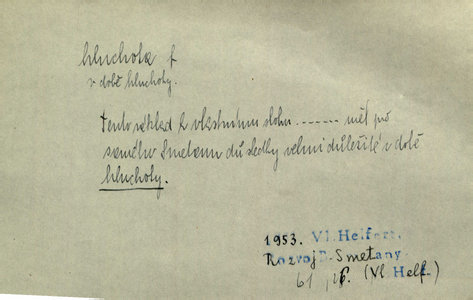 hluchota f
v době hluchoty.
Tento základ k vlastnímu slohu ....... měl pro
samého Smetanu důsledky velmi důležité v době
hluchoty.
1953. Vl. Helfert,
Rozvoj B. Smetany
61, (Vl. Helf.)